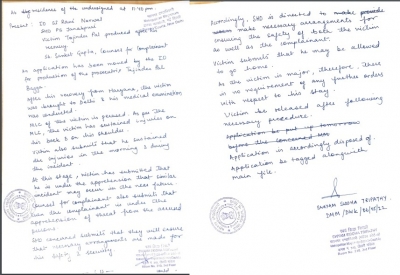 At residence of the undersigned at 11:45 pm.
Present: IO SI Ravi Narwal
SHO PS Janakpuri
Victim Tajinder Pal produced after his
recovery
Sh. Sanket Gupta, Counsel for Complainant
An application has been moved by the IO
for production of the prosecutrix Tajinder Pal
Bagga.
After his recovery from Haryana, the victim
was brought to Delhi & his medical examination
was conducted.
MLC of the victim is perused. As per the
MLC, the victim has sustained injuries on
his back & on his shoulder.
Victim also submits that he sustained
the injuries in the morning & during
the incident.
At this stage, victim has submitted that
he is under the apprehension that similar
incident may occur in the near future.
Counsel for complainant also submits that
even the complainant is under the
apprehension of threat from the accused
persons.
SHO concerned submits that they will ensure
that necessary arrangements are made for
his safety & security
Accordingly, SHO is directed to make provide
make necessary arrangements for
ensuring the safety of both the victim
as well as the complainant.
Victim submits that he may be allowed
to go home.
As the victim is major, therefore, there
is no requirement of any further orders
with respect to his stay.
Victim be released after following
necessary procedure.
Application be put up tomorrow
before the concerned
Application is accordingly disposed of.
Application be tagged alongwith
main file.
SWAYAM SIDDHA TRIPATHY
DMM/DWK/06/05/22